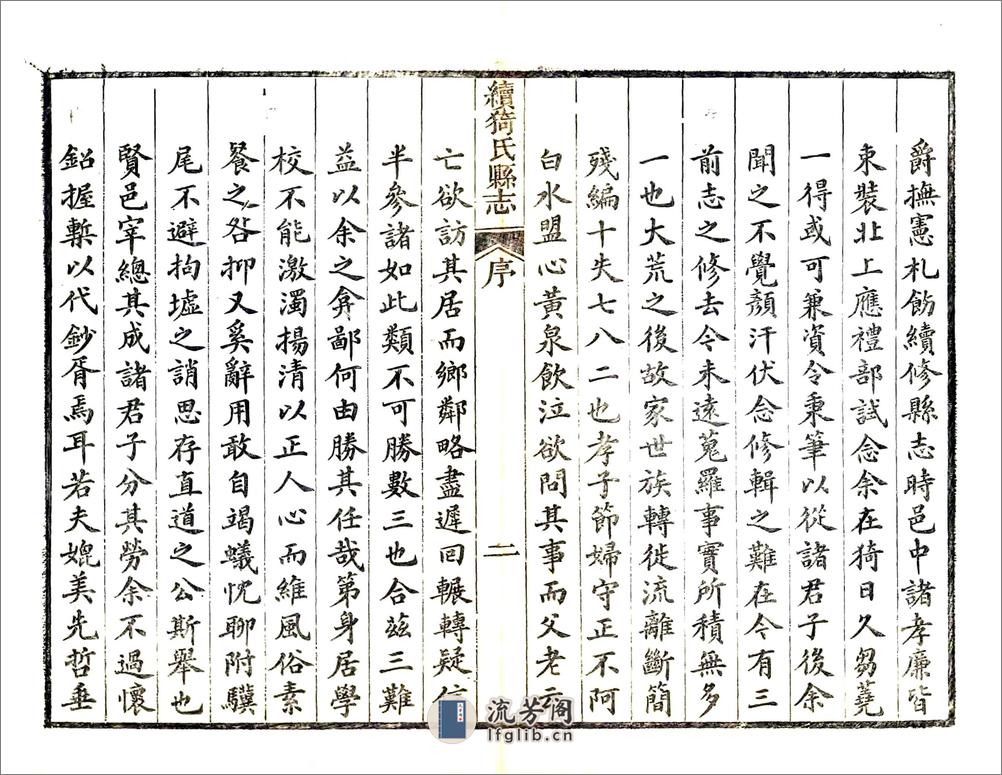 爵撫憲札飭續修縣志時邑中諸孝廉皆
束裝北上應禮部試念余在猗日久芻蕘
一得或可兼資令秉筆以從諸君子後余
聞之不覺顏汗伏念修輯之難在令有三
前志之修去今未遠蒐羅事實所積無多
一也大荒之後故家世族轉徙流離斷簡
殘編十失七八二也孝子節婦守正不阿
白水盟心黃泉飲泣欲問其事而父老云
續猗氏縣志
序
二
亡欲訪其居而鄉鄰略盡遲回輾轉疑信
半參諸如此類不可勝數三也合茲三難
益以余之弇鄙何由勝其任哉第身居學
校不能激濁揚清以正人心而維風俗素
餐之咎抑又奚辭用敢自竭蟻忱聊附驥
尾不避拘墟之誚思存直道之公斯舉也
賢邑宰總其成諸君子分其勞余不過懷
鉛握槧以代鈔胥焉耳若夫媲美先哲垂
流芳阁
lfglib.cn